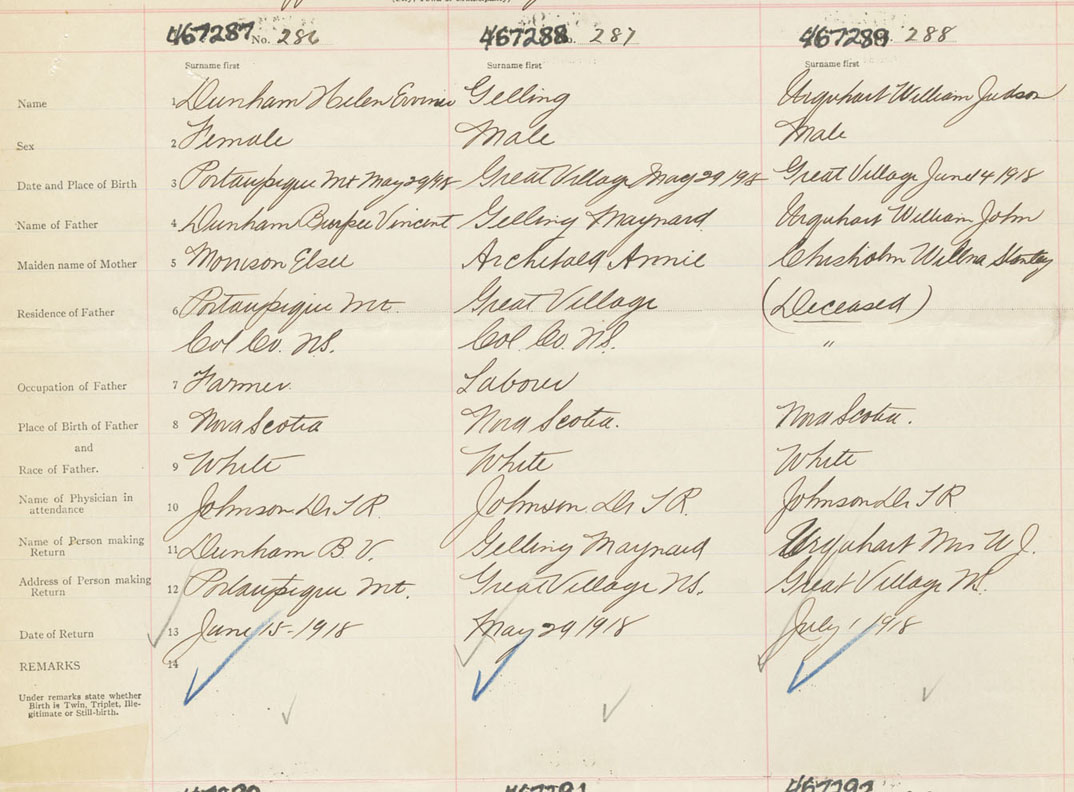 467287 No. 286 467288 No. 287 467289 288
Surname first Surname first Surname first
Name 1 Dunham Helen Gelling Urquhart William Judson
Sex 2 Female Male Male
Date and Place of Birth 3 Portaupique Mt May 29/18 Great Village May 29 1918 Great Village June 4 1918
Name of Father 4 Dunham Burpee Vincent Gelling Maynard Urquhart William John
Maiden name of Mother 5 Morrison Elsie Archibald Annie Chisholm Willena Stanley
Residence of Father 6 Portaupique Mt. Great Village (Deceased)
Col Co. N.S. Col. Co. N.S. "
Occupation of Father 7 Farmer Labourer
Place of Birth of Father 8 Nova Scotia Nova Scotia. Nova Scotia.
and
Race of Father. 9 White White White
Name of Physician in
attendance 10 Johnson Dr T R. Johnson Dr T R. Johnson Dr T R.
Name of Person making
Return 11 Dunham B. V. Gelling Maynard Urquhart Mrs W J.
Address of Person making
Return 12 Portaupique Mt. Great Village N.S. Great Village N.S.
Date of Return 13 June 15-1918 May 29 1918 July 1 1918
REMARKS 14
Under remarks state whether
Birth is Twin, Triplet, Ille-
gitimate or Still-birth.